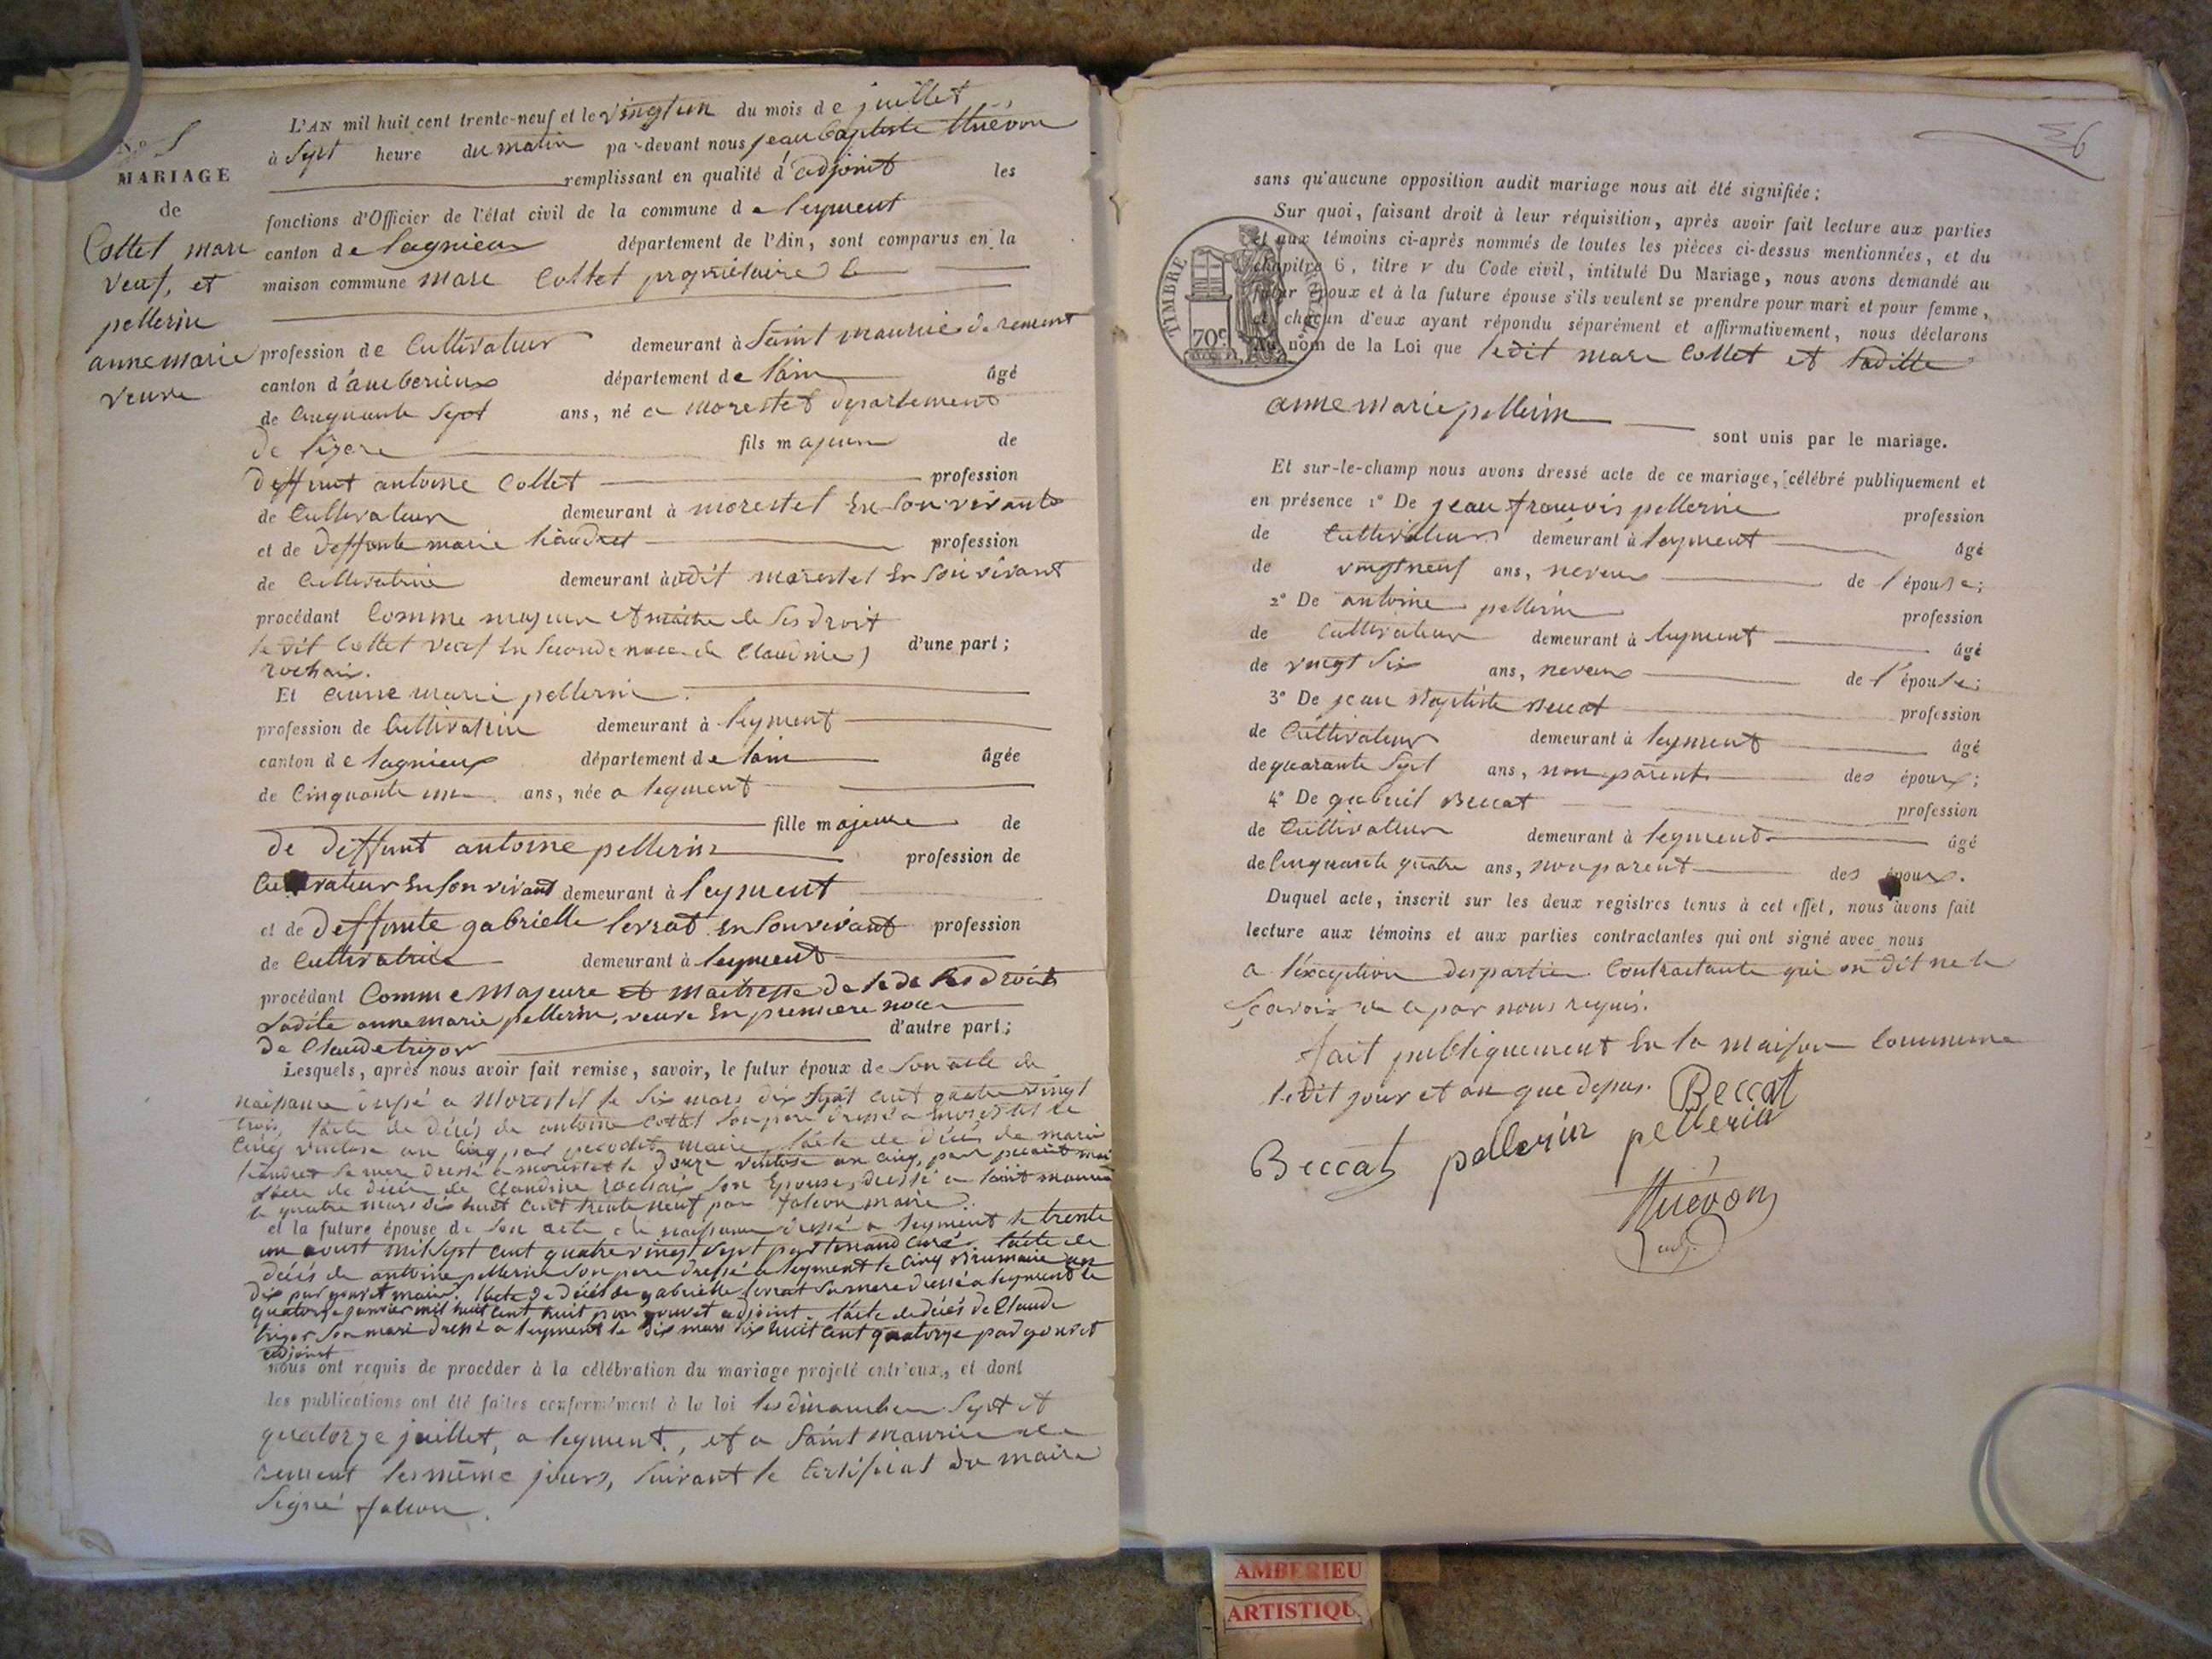 N.º 5
MARIAGE
de
Collet marc
veuf, et
pellerin
anne marie
veuve
L'AN mil huit cent trente-neuf et le vingt un du mois de juillet
à sept heure du matin par-devant nous jean baptiste
remplissant en qualité d'adjoint les
fonctions d'Officier de l'état civil de la commune de leyment
canton de lagnieu département de l'Ain, sont comparus en la
maison commune marc Collet propriétaire
profession de Cultivateur demeurant à Saint maurice de remens
canton d'amberieux département de l'ain âgé
de Cinquante Sept ans, né a morestel departement
de l'izere fils majeur de
deffunt antoine Collet profession
de Cultivateur demeurant à morestel En Son vivant
et de deffunte marie profession
de Cultivatrice demeurant audit morestel En Son vivant
procédant Comme majeur et maitre de Ses droit
le dit Collet veuf En Seconde noce de Claudine d'une part;
rochais.
Et anne marie pellerin
profession de Cultivatrice demeurant à leyment
canton de lagnieux département de l'ain âgée
de Cinquante un ans, née a leyment
fille majeure de
de deffunt antoine pellerin profession de
Cultivateur En Son vivant demeurant à leyment
et de deffunte gabrielle levrat En Son vivant profession
de Cultivatrice demeurant à leyment
procédant Comme Majeure et maitresse de ses droits
Ladite anne marie pellerin, veuve En premiere noce d'autre part;
de Claude
Lesquels, après nous avoir fait remise, savoir, le futur époux de Son acte de
naissance dressé a Morestel le Six mars dix Sept cent quatre vingt
trois, l'acte de décés de antoine Collet Son pere dressé a morestel le
Cinq ventose an Cinq par maire, l'acte de décés de marie
Sa mere dressé a morestel le douze ventose an Cinq, par
l'acte de décés de Claudine rochais Son Epouse, dressé a Saint maurice
le quatre mars dix huit Cent trente neuf par falcon maire.
et la future épouse de Son acte de naissance dressé a leyment le trente
un aoust mil Sept Cent quatre vingt Sept par Curé. l'acte de
décés de antoine pellerin Son pere dressé a leyment le Cinq Brumaire an
dix par gouvet maire. l'acte de décés de gabrielle levrat Sa mere dressé a leyment le
quatorze janvier mil huit cent huit par gouvet adjoint. l'acte de décés de Claude
Son mari dressé a leyment le dix mars dix huit Cent quatorze par gouvet
adjoint
nous ont requis de procéder à la célébration du mariage projeté entr'eux, et dont
les publications ont été faites conformément à la loi les dimanches Sept et
quatorze juillet, a leyment, et a Saint maurice de
remens les même jours, Suivant le Certificat du maire
Signé falcon.
36
sans qu'aucune opposition audit mariage nous ait été signifiée;
Sur quoi, faisant droit à leur réquisition, après avoir fait lecture aux parties
et aux témoins ci-après nommés de toutes les pièces ci-dessus mentionnées, et du
chapitre 6, titre v du Code civil, intitulé Du Mariage, nous avons demandé au
futur époux et à la future épouse s'ils veulent se prendre pour mari et pour femme,
et chacun d'eux ayant répondu séparément et affirmativement, nous déclarons
Au nom de la Loi que ledit marc Collet et Laditte
TIMBRE ROYAL
70c
anne marie pellerin
sont unis par le mariage.
Et sur-le-champ nous avons dressé acte de ce mariage, célébré publiquement et
en présence 1º De jean françois pellerin profession
de Cultivateur demeurant à leyment âgé
de vingt neuf ans, neveux de l'épouse;
2º De antoine pellerin profession
de Cultivateur demeurant à leyment âgé
de vingt Six ans, neveux de l'épouse;
3º De jean Baptiste Beccat profession
de Cultivateur demeurant à leyment âgé
de quarante Sept ans, non parent des époux;
4º De gabriel Beccat profession
de Cultivateur demeurant à leyment âgé
de Cinquante quatre ans, non parent des époux.
Duquel acte, inscrit sur les deux registres tenus à cet effet, nous avons fait
lecture aux témoins et aux parties contractantes qui ont signé avec nous
a l'exception des parties Contractante qui on dit ne le
Sçavoir de ce par nous requis.
fait publiquement En la maison Commune
ledit jour et an que depus. Beccat
Beccat pellerin pellerin
adj.
AMBERIEU
ARTISTIQU